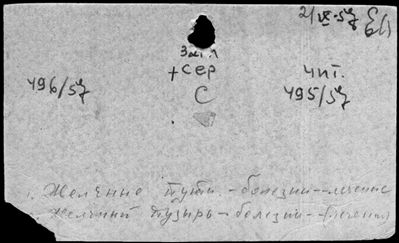 21/IX-57
+ сер
чит.
496/57
С
495/57
1. Желчные пути. - болезни - лечение
Желчный пузырь - болезни - лечения